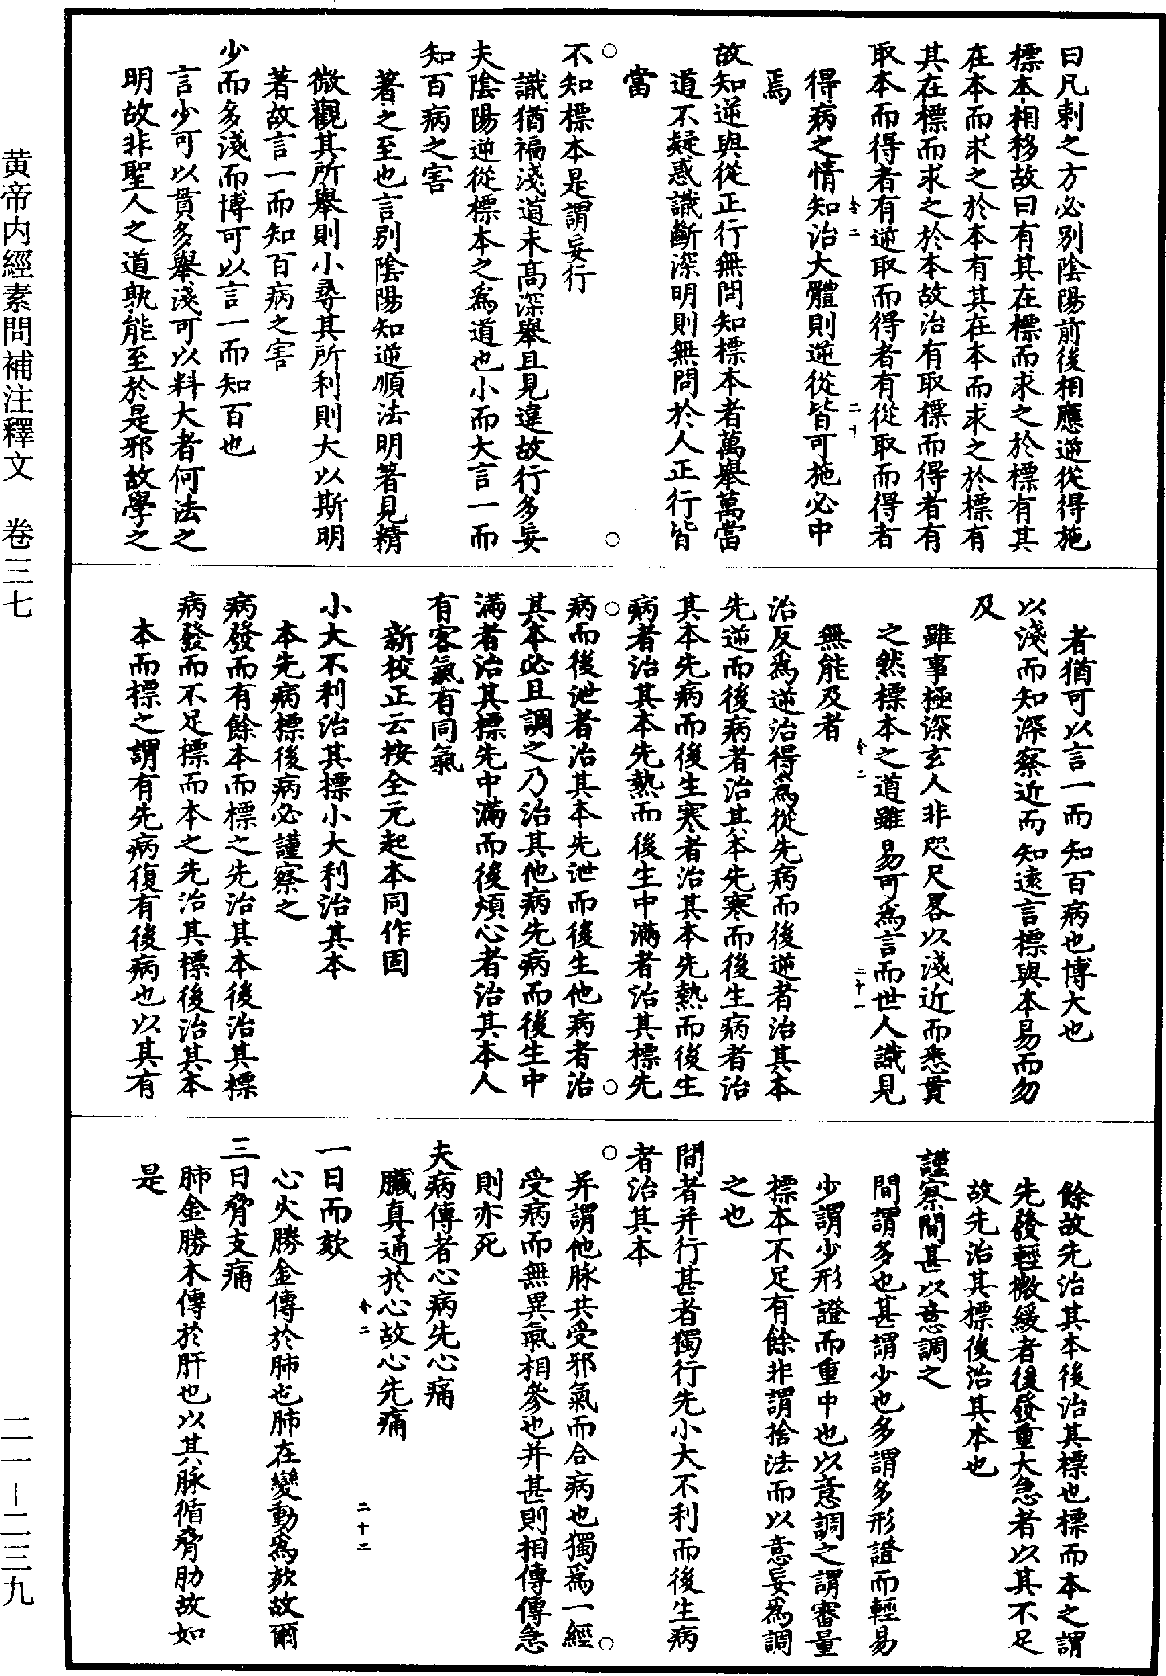 曰凡刺之方必別陰陽前後相應逆從得施
標本相移故曰有其在標而求之於標有其
在本而求之於本有其在本而求之於標有
其在標而求之於本故治有取標而得者有
取本而得者有逆取而得者有從取而得者
得病之情知治大體則逆從皆可施必中
焉
故知逆與從正行無問知標本者萬舉萬當
道不疑惑識斷深明則無問於人正行皆
當
不知標本是謂妄行
識猶褊淺道未高深舉且見違故行多妄
夫陰陽逆從標本之為道也小而大言一而
知百病之害
著之至也言別陰陽知逆順法明著見精
微觀其所舉則小尋其所利則大以斯明
著故言一而知百病之害
少而多淺而博可以言一而知百也
言少可以貫多舉淺可以料大者何法之
明故非聖人之道孰能至於是邪故學之
者猶可以言一而知百病也博大也
以淺而知深察近而知遠言標與本易而勿
及
雖事極深玄人非咫尺畧以淺近而悉貫
之然標本之道雖易可為言而世人識見
無能及者
治反為逆治得為從先病而後逆者治其本
先逆而後病者治其本先寒而後生病者治
其本先病而後生寒者治其本先熱而後生
病者治其本先熱而後生中滿者治其標先
病而後泄者治其本先泄而後生他病者治
其本必且調之乃治其他病先病而後生中
滿者治其標先中滿而後煩心者治其本人
有客氣有同氣
新校正云按全元起本同作固
小大不利治其標小大利治其本
本先病標後病必謹察之
病發而有餘本而標之先治其本後治其標
病發而不足標而本之先治其標後治其本
本而標之謂有先病復有後病也以其有
餘故先治其本後治其標也標而本之謂
先發輕微緩者後發重大急者以其不足
故先治其標後治其本也
謹察間甚以意調之
間謂多也甚謂少也多謂多形證而輕易
少謂少形證而重中也以意調之謂審量
標本不足有餘非謂捨法而以意妄為調
之也
間者并行甚者獨行先小大不利而後生病
者治其本
并謂他脉共受邪氣而合病也獨為一經
受病而無異氣相參也并甚則相傳傳急
則亦死
夫病傳者心病先心痛
臟真通於心故心先痛
一日而欬
心火勝金傳於肺也肺在變動為欬故爾
三日脅支痛
肺金勝木傳於肝也以其脉循脅肋故如
是
黄帝内經素問補注釋文　卷三七
二一—二三九